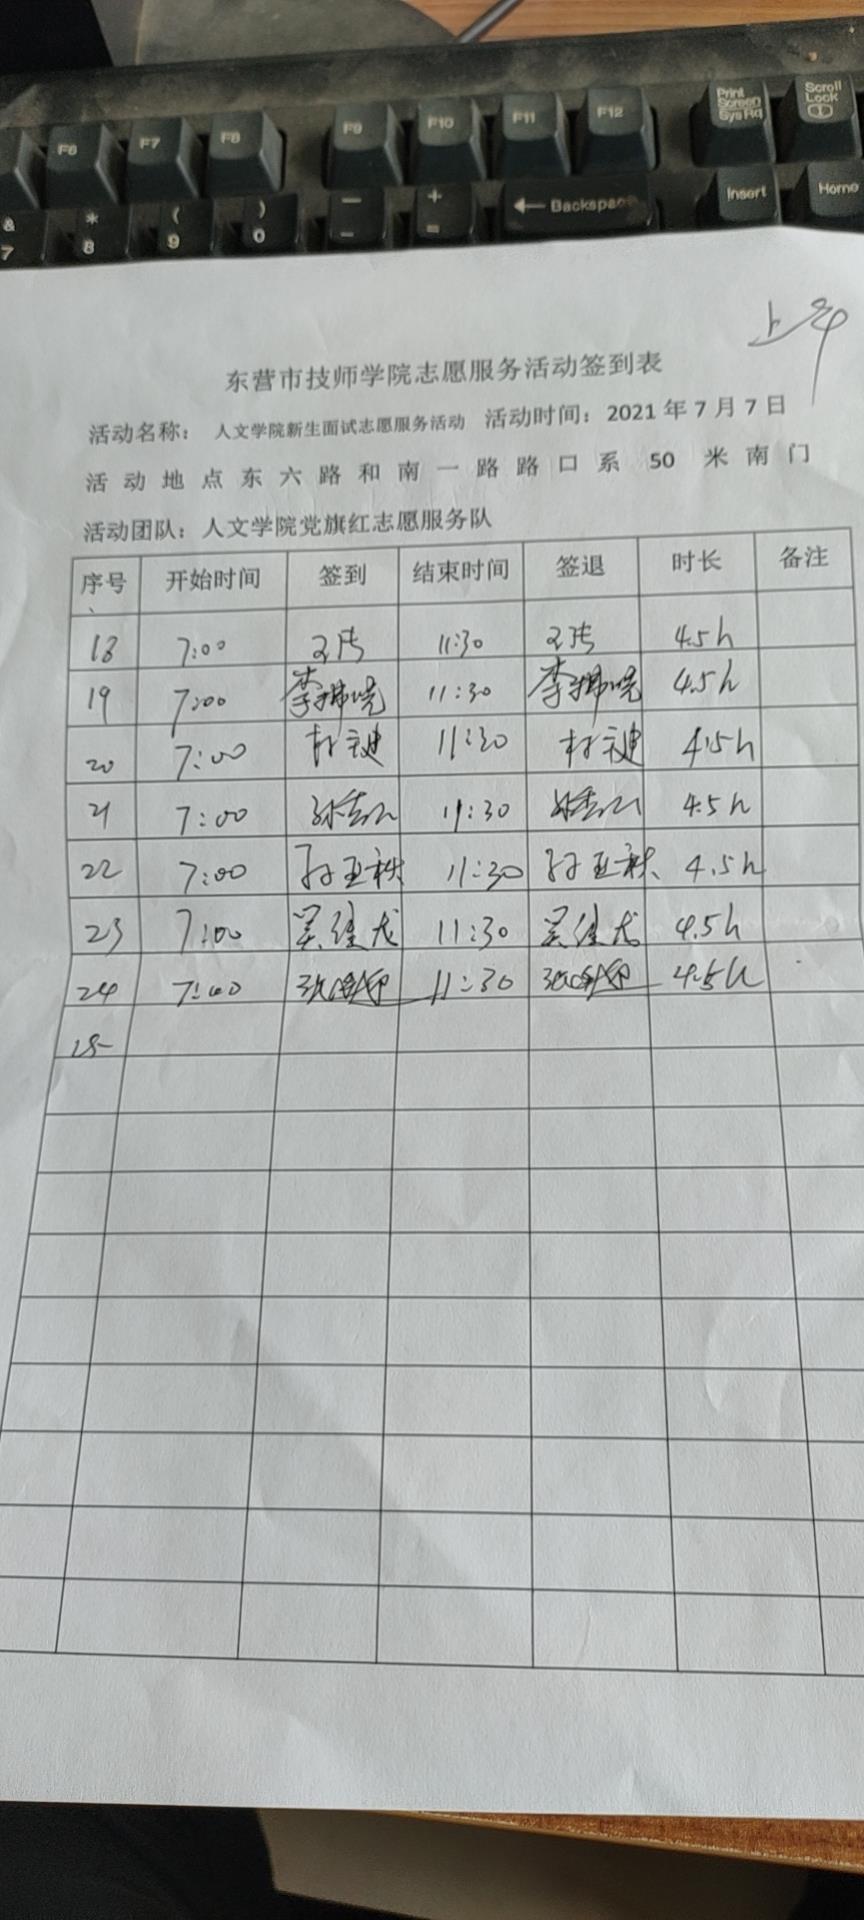 F6 F7 F8 F9 F10 F11 F12 Print Screen SysRq Scroll Lock
& 7 * 8 ( 9 ) 0 — - + = ← Backspace Insert Home
上午
东营市技师学院志愿服务活动签到表
活动名称： 人文学院新生面试志愿服务活动 活动时间：2021 年 7 月 7 日
活动地点东六路和南一路路口系 50 米南门
活动团队：人文学院党旗红志愿服务队
序号 开始时间 签到 结束时间 签退 时长 备注
18 7:00 11:30 4.5h
19 7:00 李 11:30 李 4.5h
20 7:00 杜 11:30 杜 4.5h
21 7:00 孙 11:30 孙 4.5h
22 7:00 孙亚秩 11:30 孙亚秩 4.5h
23 7:00 吴佳龙 11:30 吴佳龙 4.5h
24 7:00 张 11:30 张 4.5h
25